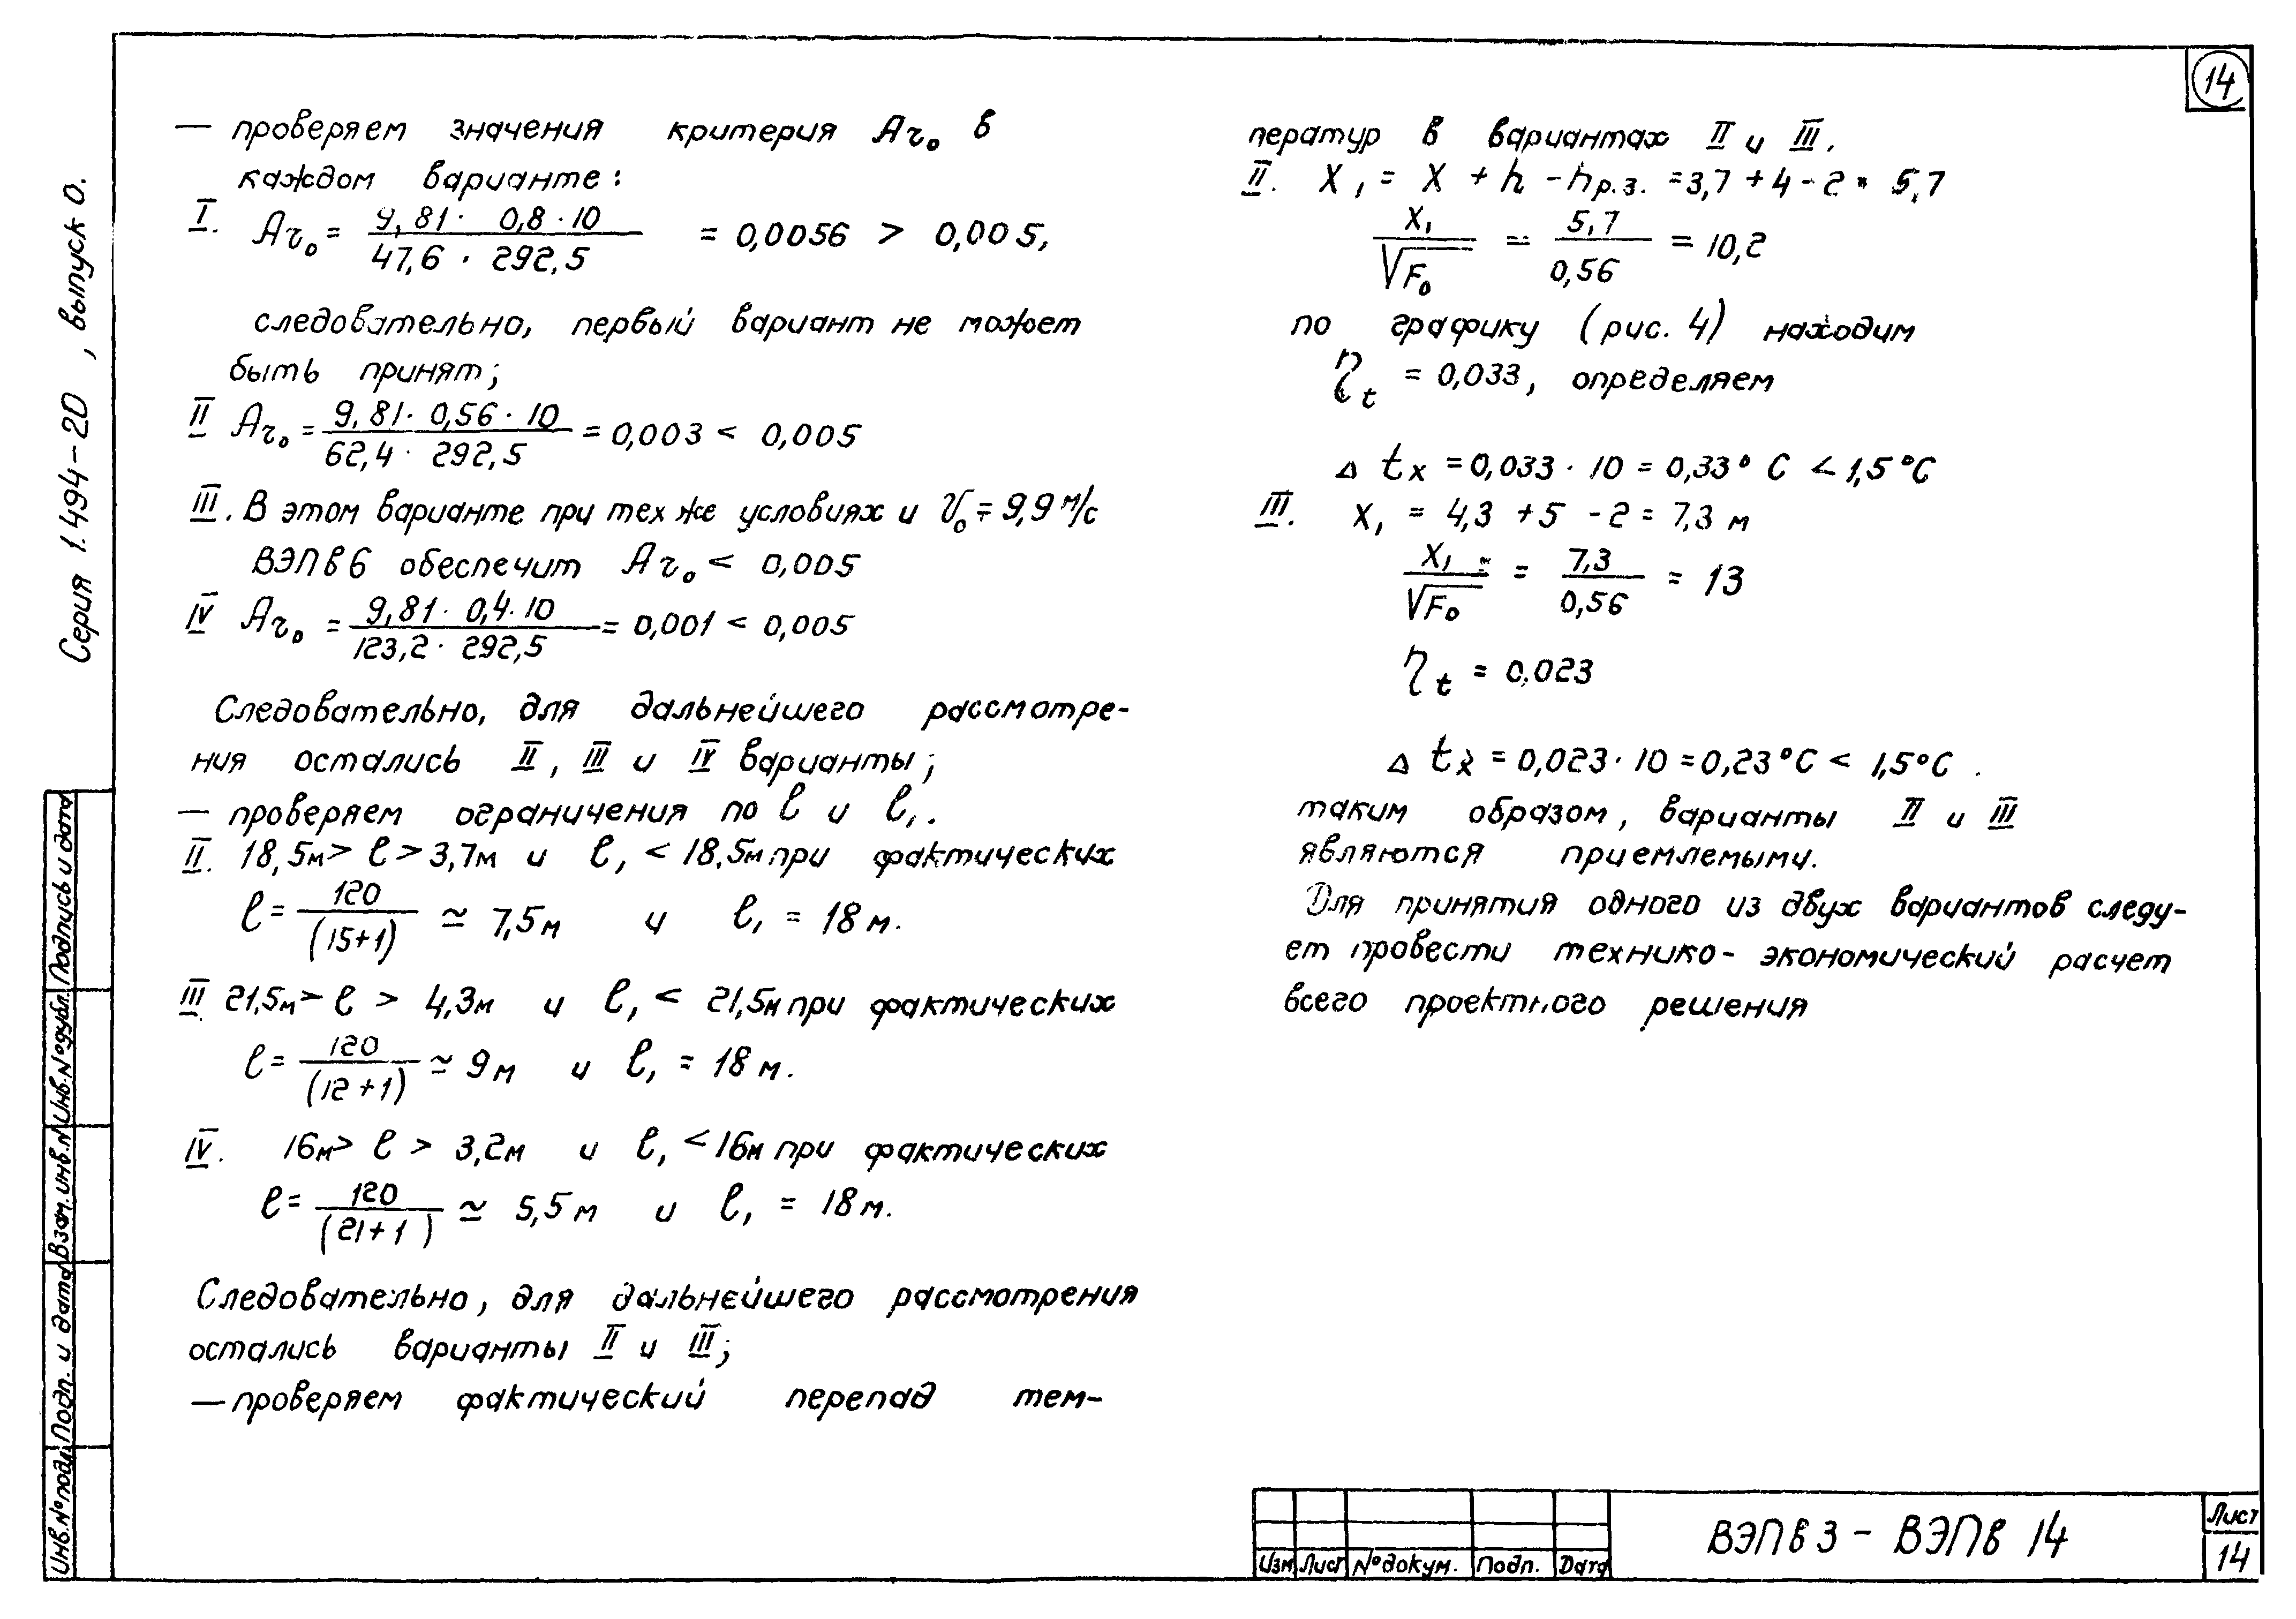 14
— проверяем значения критерия Ar₀ в
каждом варианте:
I. Ar₀ = 9,81 · 0,8 · 10 / 47,6 · 292,5 = 0,0056 > 0,005,
следовательно, первый вариант не может
быть принят;
II Ar₀ = 9,81 · 0,56 · 10 / 62,4 · 292,5 = 0,003 < 0,005
III. В этом варианте при тех же условиях и V₀ = 9,9 м/с
ВЭПв6 обеспечит Ar₀ < 0,005
IV Ar₀ = 9,81 · 0,4 · 10 / 123,2 · 292,5 = 0,001 < 0,005
Следовательно, для дальнейшего рассмотре-
ния остались II, III и IV варианты;
— проверяем ограничения по ℓ и ℓ₁.
II. 18,5м > ℓ > 3,7м и ℓ₁ < 18,5м при фактических
ℓ = 120 / (15+1) ≃ 7,5м и ℓ₁ = 18 м.
III 21,5м > ℓ > 4,3м и ℓ₁ < 21,5м при фактических
ℓ = 120 / (12+1) ≃ 9м и ℓ₁ = 18 м.
IV. 16м > ℓ > 3,2м и ℓ₁ < 16м при фактических
ℓ = 120 / (21+1) ≃ 5,5м и ℓ₁ = 18м.
Следовательно, для дальнейшего рассмотрения
остались варианты II и III;
— проверяем фактический перепад тем-
ператур в вариантах II и III.
II. X₁ = X + h - hр.з. = 3,7 + 4 - 2 = 5,7
X₁ / √F₀ = 5,7 / 0,56 = 10,2
по графику (рис. 4) находим
ηt = 0,033, определяем
Δ tx = 0,033 · 10 = 0,33° C < 1,5°C
III. X₁ = 4,3 + 5 - 2 = 7,3 м
X₁ / √F₀ = 7,3 / 0,56 = 13
ηt = 0,023
Δ tx = 0,023 · 10 = 0,23°C < 1,5°C.
таким образом, варианты II и III
являются приемлемыми.
Для принятия одного из двух вариантов следу-
ет провести технико-экономический расчет
всего проектного решения
Серия 1.494-20, выпуск 0.
Подпись и дата
Инв.№дубл.
Взам.инв.№
Подп. и дата
Инв.№подл.
Изм Лист №докум. Подп. Дата
ВЭПв3 - ВЭПв 14
Лист
14